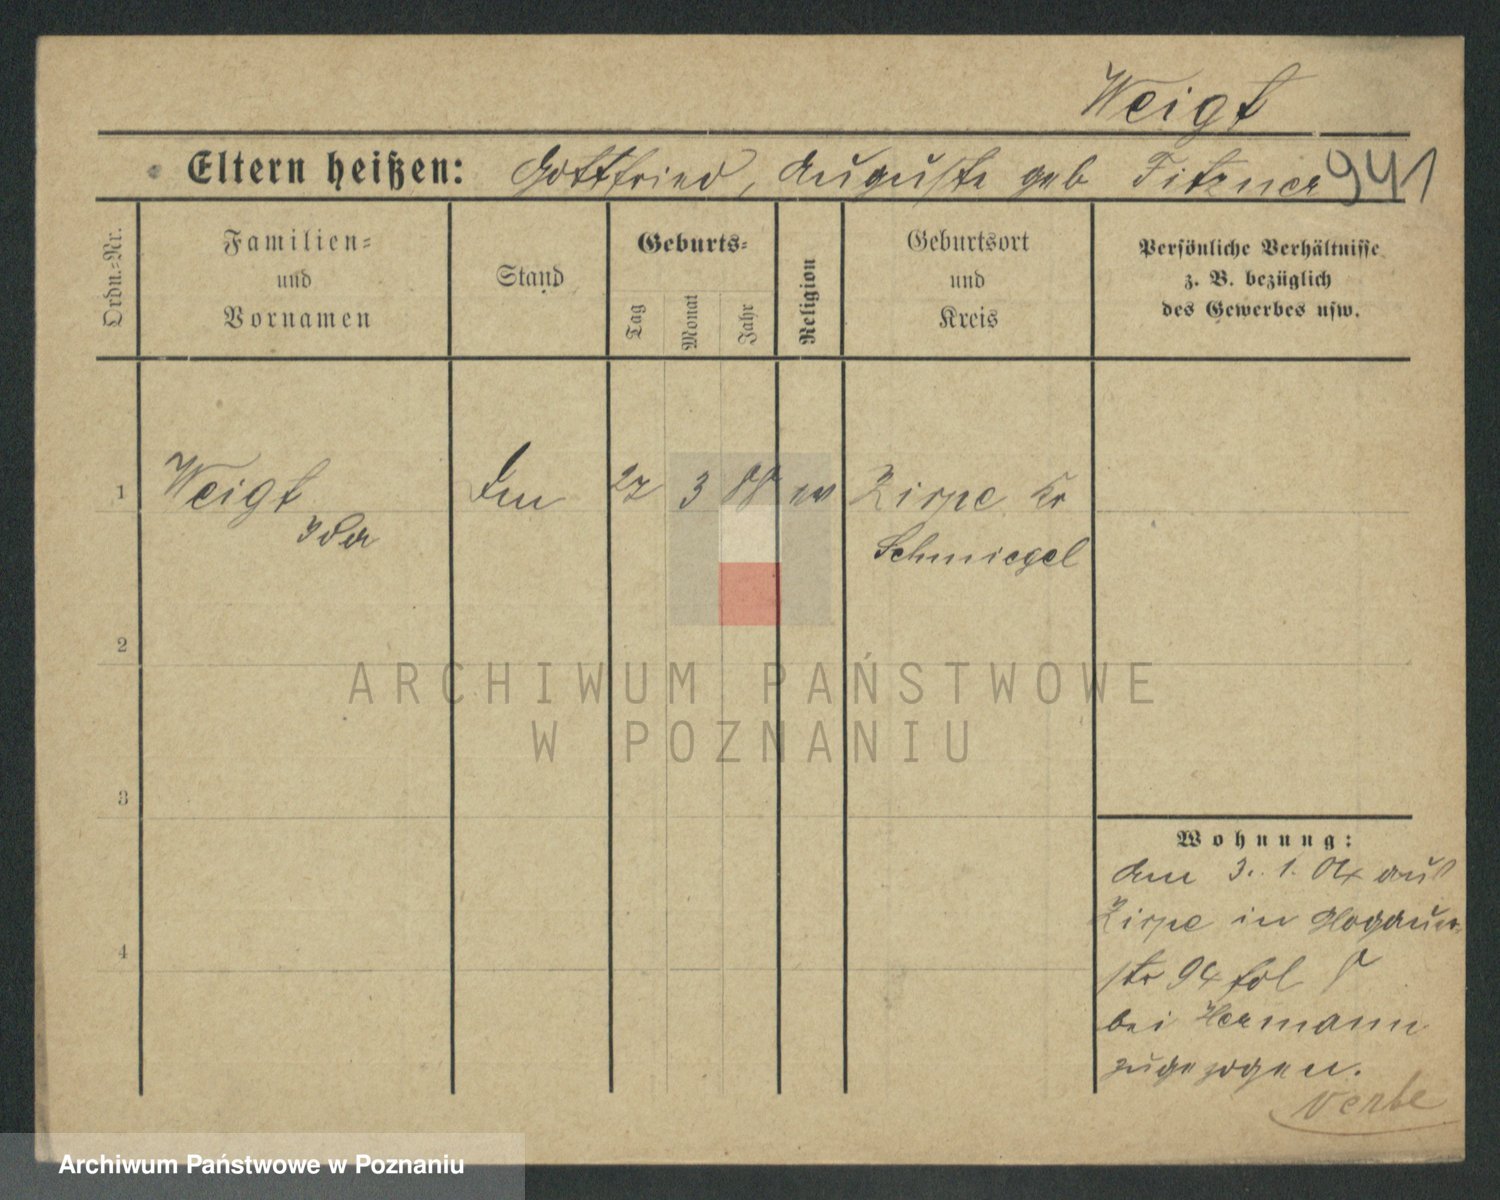 Weigt
Eltern heißen: Gottfried, Auguste geb Fitzner 941
Ordn.=Nr.
Familien=
und
Vornamen
Stand
Geburts=
Tag
Monat
Jahr
Religion
Geburtsort
und
Kreis
Persönliche Verhältnisse
z. B. bezüglich
des Gewerbes usw.
1 Weigt 27 3 88 ev Zirpe Kr
Ida Schmiegel
2
ARCHIWUM PAŃSTWOWE
W POZNANIU
3
Wohnung:
am 3. 1. 04 aus
Zirpe in Glogauer-
str 94 fol
4
bei Hermann
zugezogen.
Archiwum Państwowe w Poznaniu